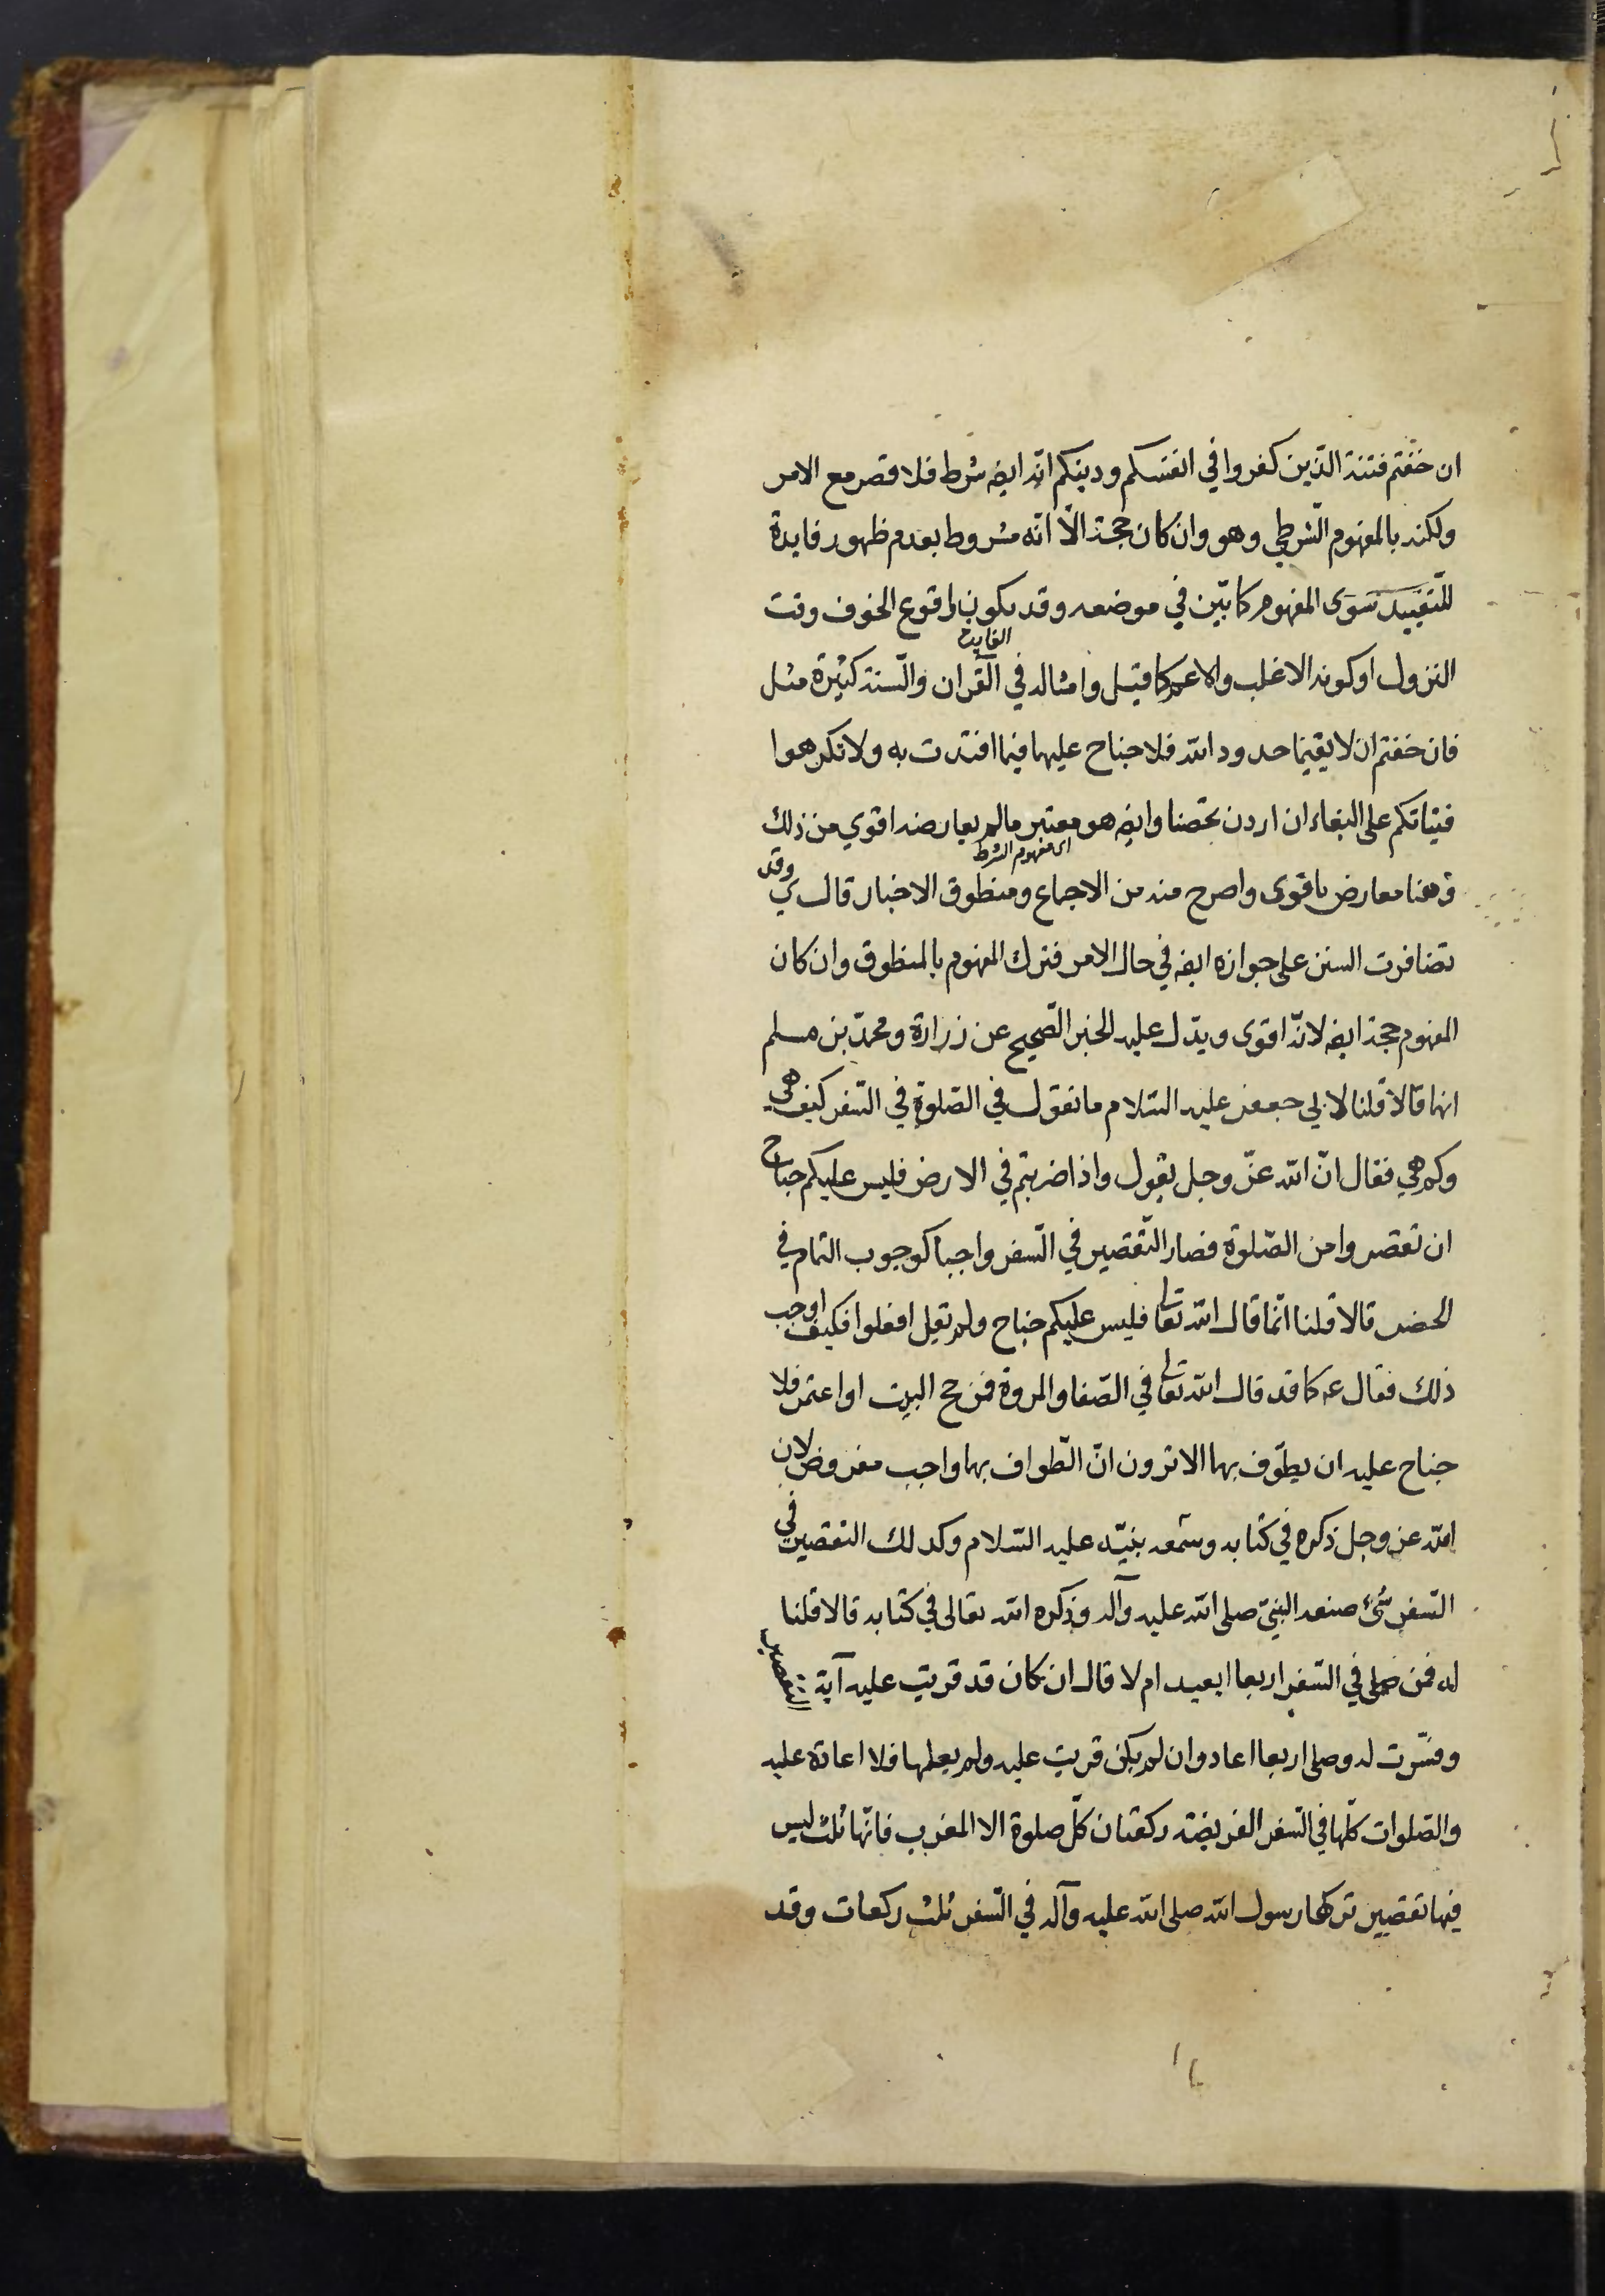 ان خفتم فتنة الذين كفروا في انفسكم ودينكم انّه ايضه شرط فلا قصر مع الامر
ولكنه بالمفهوم الشرطي وهو وان كان حجة الّا انّه مشروط بعدم ظهور فايدة
للتقييد سوى المفهوم كما بيّن في موضعه وقد يكون لوقوع الخوف وقت
الفايدة
النزول او كونه الاغلب والاعم كما قيل وامثاله في القرآن والسنة كثيرة مثل
فان خفتم ان لا يقيما حدود الله فلا جناح عليهما فيما افتدت به ولا تكرهوا
فتياتكم على البغاء ان اردن تحصنا وايضه هو معتبر مالم يعارضه اقوي من ذلك
اى مفهوم الشرط
وهنا معارض باقوى واصرح منه من الاجماع ومنطوق الاخبار قال ي وقد
تضافرت السنن على جوازه ايضه في حال الامر فترك المفهوم بالمنطوق وان كان
المفهوم حجة ايضه لانّه اقوى ويدّل عليه الخبر الصّحيح عن زرارة ومحمّد بن مسلم
انهما قالا قلنا لابي جعفر عليه السّلام ما تقول في الصّلوة في السّفر كيف هي
وكم هي فقال انّ الله عزّ وجل يقول واذا ضربتم في الارض فليس عليكم جناح
ان تقصروا من الصّلوة فصار التّقصير في السّفر واجبا كوجوب التمام في
الحضر قالا قلنا انّما قال الله تعالى فليس عليكم جناح ولم يقل افعلوا فكيف اوجب
ذلك فقال عه كما قد قال الله تعالى في الصّفا والمروة فمن حج البيت او اعتمر فلا
جناح عليه ان يطوّف بهما الا ترون انّ الطّواف بهما واجب مفروض لان
الله عز وجل ذكره في كتابه وسنّه نبيّه عليه السّلام وكذلك التقصير في
السّفر شئ صنعه النبيّ صلى الله عليه وآله وذكره الله تعالى في كتابه قالا قلنا
له فمن صلى في السّفر اربعا ايعيد ام لا قال ان كان قد قريت عليه آية التقصير
وفسّرت له وصلى اربعا اعاد وان لم يكن قريت عليه ولم يعلمها فلا اعادة عليه
والصّلوات كلّها في السّفر الفريضة ركعتان كلّ صلوة الا المغرب فانّها ثلث ليس
فيها تقصير تركها رسول الله صلى الله عليه وآله في السّفر ثلث ركعات وقد